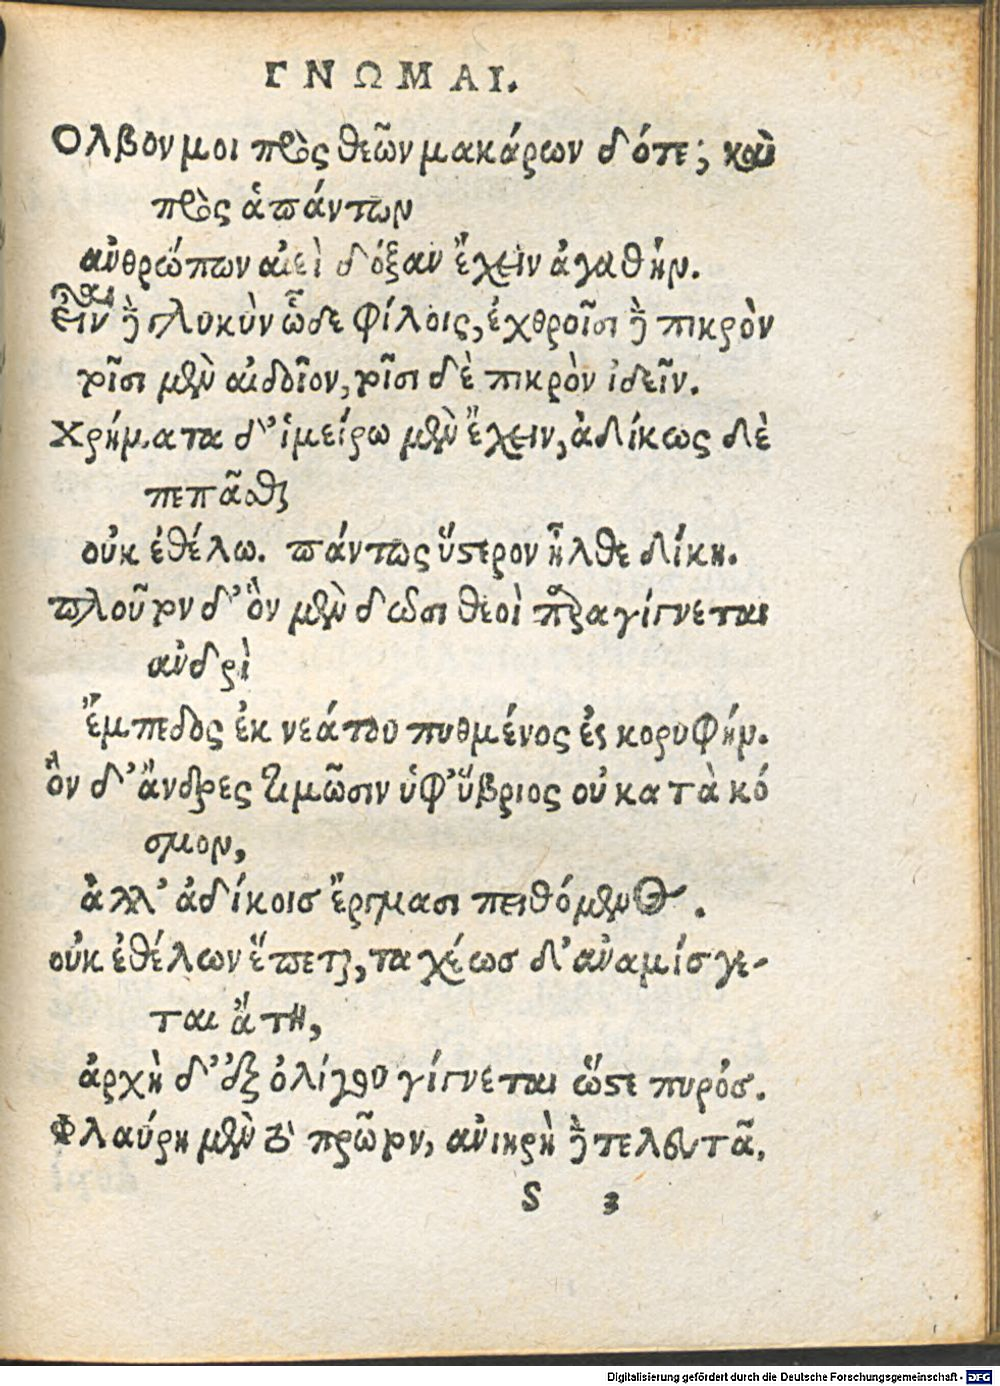 ΓΝΩΜΑΙ.
Ολβον μοι πρὸς θεῶν μακάρων δότε; καὶ
πρὸς ἁπάντων
ἀνθρώπων αἰεὶ δόξαν ἔχειν ἀγαθήν.
εἶναι ἢ γλυκὺν ὧδε φίλοις, ἐχθροῖσι ἢ πικρὸν
τοῖσι μὲν αἰδοῖον, τοῖσι δὲ πικρὸν ἰδεῖν.
Χρήματα δ' ἱμείρω μὲν ἔχειν, ἀδίκως δὲ
πεπᾶσθαι
οὐκ ἐθέλω. πάντως ὕστερον ἦλθε δίκη.
πλοῦτον δ' ὃν μὲν δῶσι θεοὶ παραγίγνεται
ἀνδρὶ
ἔμπεδος ἐκ νεάτου πυθμένος ἐς κορυφήν.
ὃν δ' ἄνδρες τιμῶσιν ὑφ' ὕβριος οὐ κατὰ κό
σμον,
ἀλλ' ἀδίκοισ ἔργμασι πειθόμενος.
οὐκ ἐθέλων ἕπεται, ταχέωσ δ' ἀναμίσγε-
ται ἄτη,
ἀρχὴ δ' ἐξ ὀλίγου γίγνεται ὥστε πυρόσ.
Φλαύρη μὲν τὸ πρῶτον, ἀνιηρὴ ἢ τελευτᾶ.
S 3
Digitalisierung gefördert durch die Deutsche Forschungsgemeinschaft - DFG